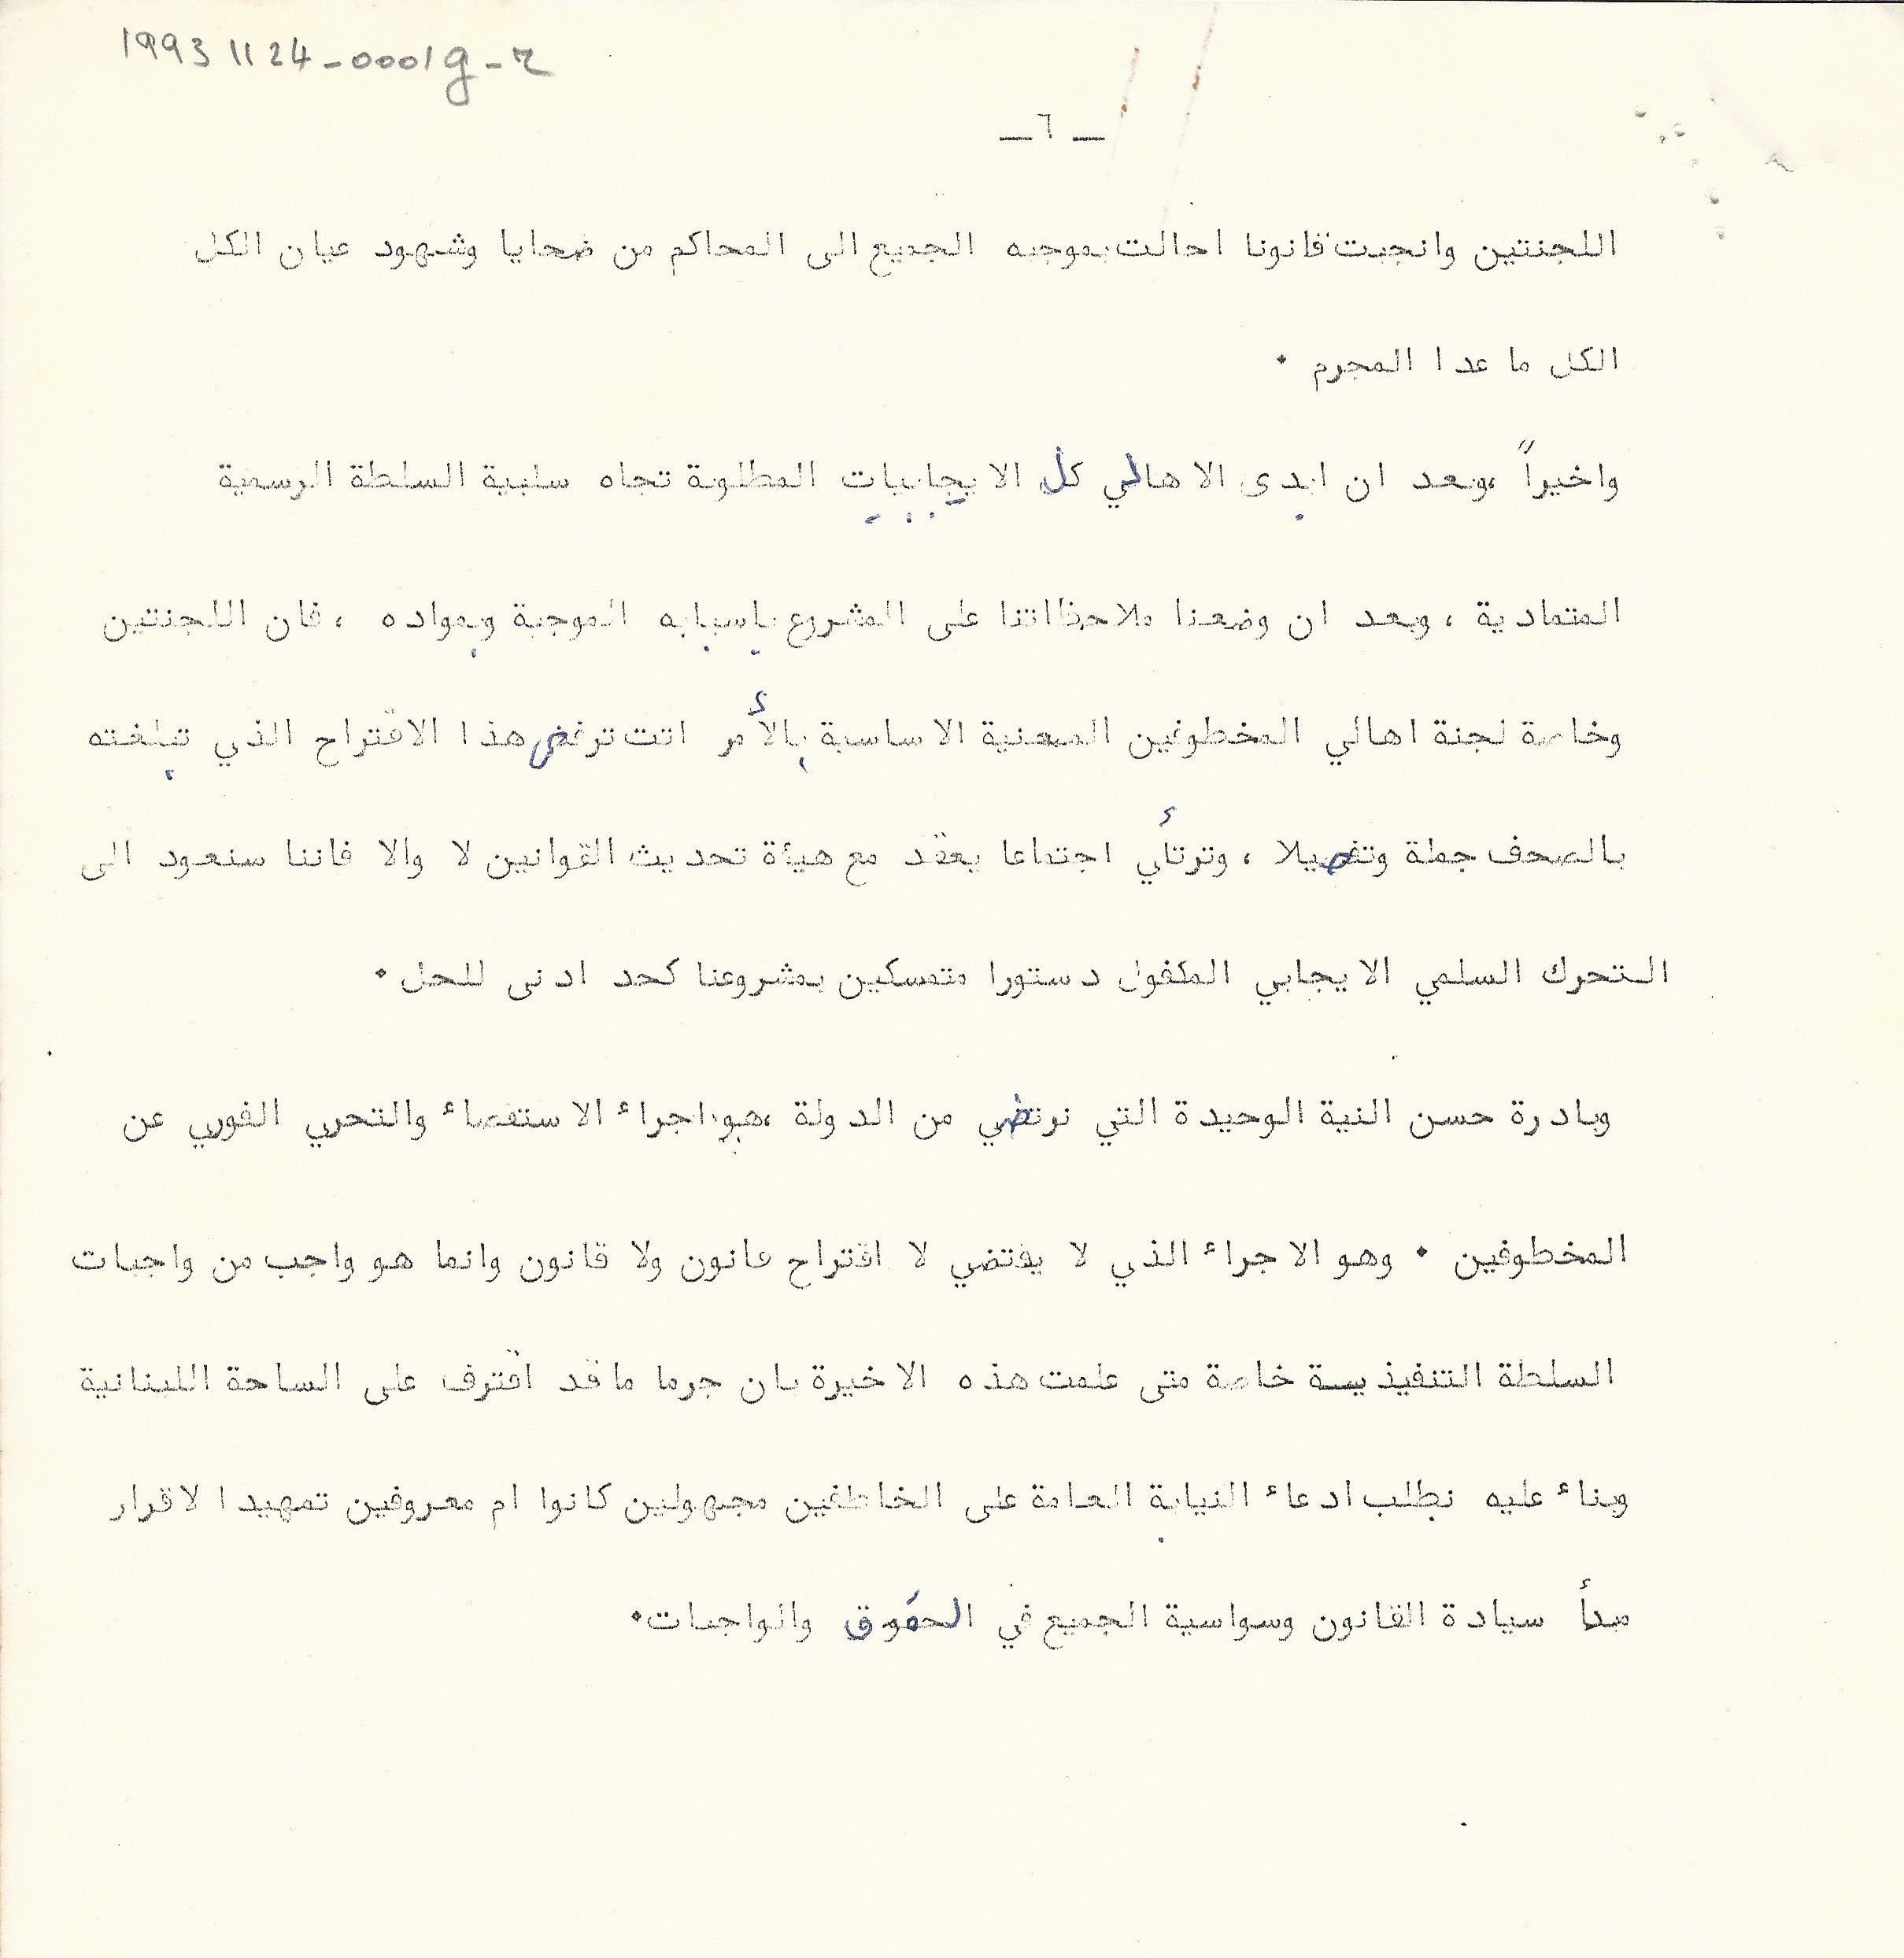 19931124-0001g-r
— ٦ —
اللجنتين وانجبت قانونا احالت بموجبه الجميع الى المحاكم من ضحايا وشهود عيان الكل
الكل ما عدا المجرم ٠
واخيراً ،وبعد ان ابدى الاهالي كل الايجابيات المطلوبة تجاه سلبية السلطة الرسمية
المتمادية ، وبعد ان وضعنا ملاحظاتنا على المشروع باسبابه الموجبة وبمواده ، فان اللجنتين
وخاصة لجنة اهالي المخطوفين المعنية الاساسية بالأمر اتت ترفض هذا الاقتراح الذي تبلغته
بالصحف جملة وتفصيلا ، وترتأي اجتماعا يعقد مع هيئة تحديث القوانين لا والا فاننا سنعود الى
التحرك السلمي الايجابي المكفول دستورا متمسكين بمشروعنا كحد ادنى للحل ٠
وبادرة حسن النية الوحيدة التي نرتضي من الدولة ،هو اجراء الاستقصاء والتحري الفوري عن
المخطوفين ٠ وهو الاجراء الذي لا يقتضي لا اقتراح قانون ولا قانون وانما هو واجب من واجبات
السلطة التنفيذية خاصة متى علمت هذه الاخيرة بان جرما ما قد اقترف على الساحة اللبنانية
وبناء عليه نطلب ادعاء النيابة العامة على الخاطفين مجهولين كانوا ام معروفين تمهيدا لاقرار
مبدأ سيادة القانون وسواسية الجميع في الحقوق والواجبات٠